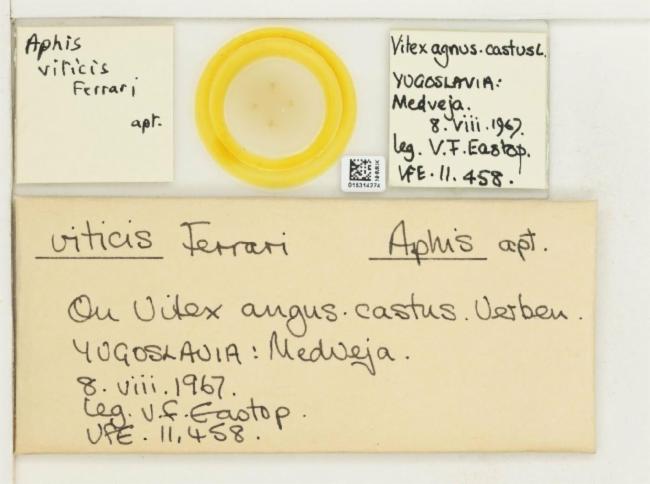 Aphis
viticis
Ferrari
apt.
Vitex agnus.castus L.
YUGOSLAVIA:
Medveja.
8.viii.1967.
leg. V.F.Eastop.
VFE.11.458.
viticis Ferrari Aphis apt.
On Vitex angus.castus.Verben.
YUGOSLAVIA: Medveja.
8.viii.1967.
leg. V.F.Eastop.
VFE.11.458.